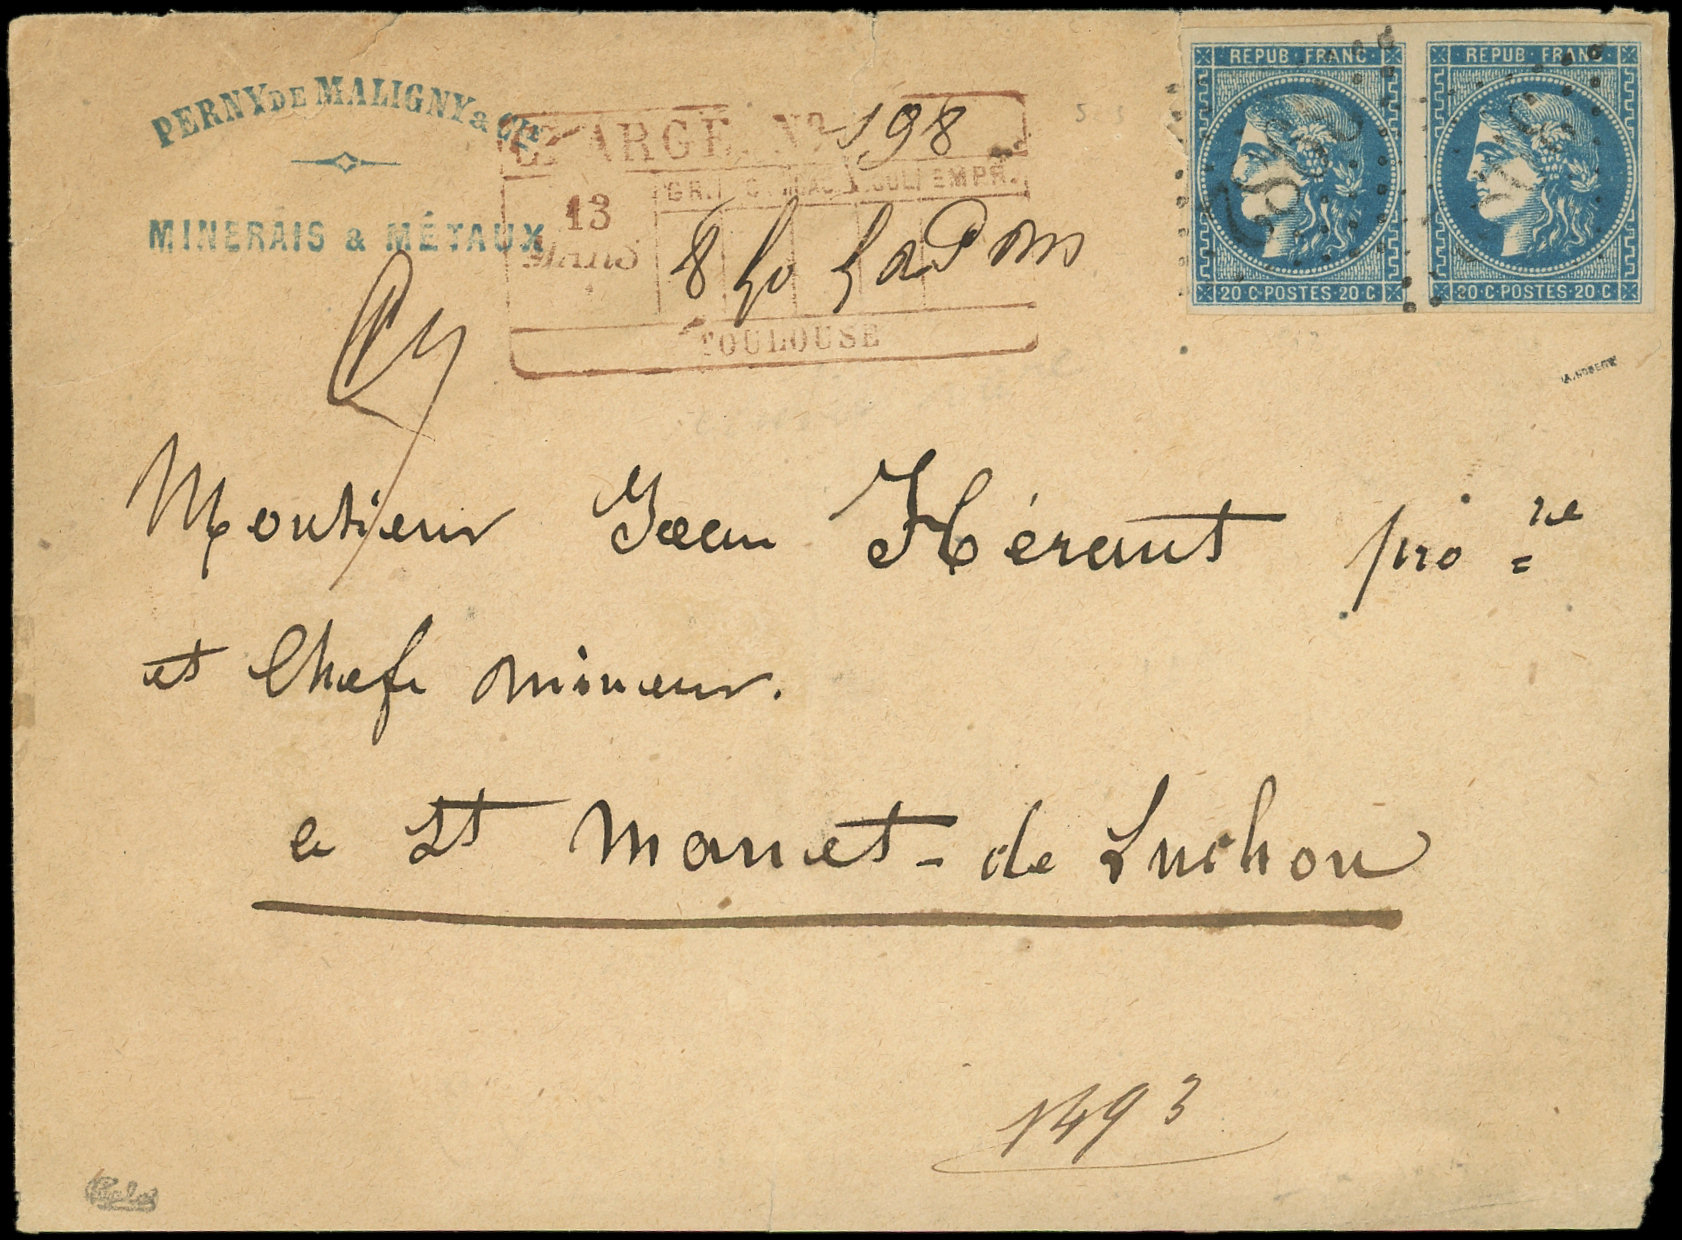 PERNY DE MALIGNY & CIE
MINERAIS & MÉTAUX
CHARGE. No 198
13
MARS
GR. C. CAC. COUL. EMPR.
8
TOULOUSE
REPUB. FRANC.
20 C·POSTES·20 C
REPUB. FRANC.
20 C·POSTES·20 C
Monsieur Jean Hérant pro re
et Chef mineur.
a St Mamet - de Luchon
1493